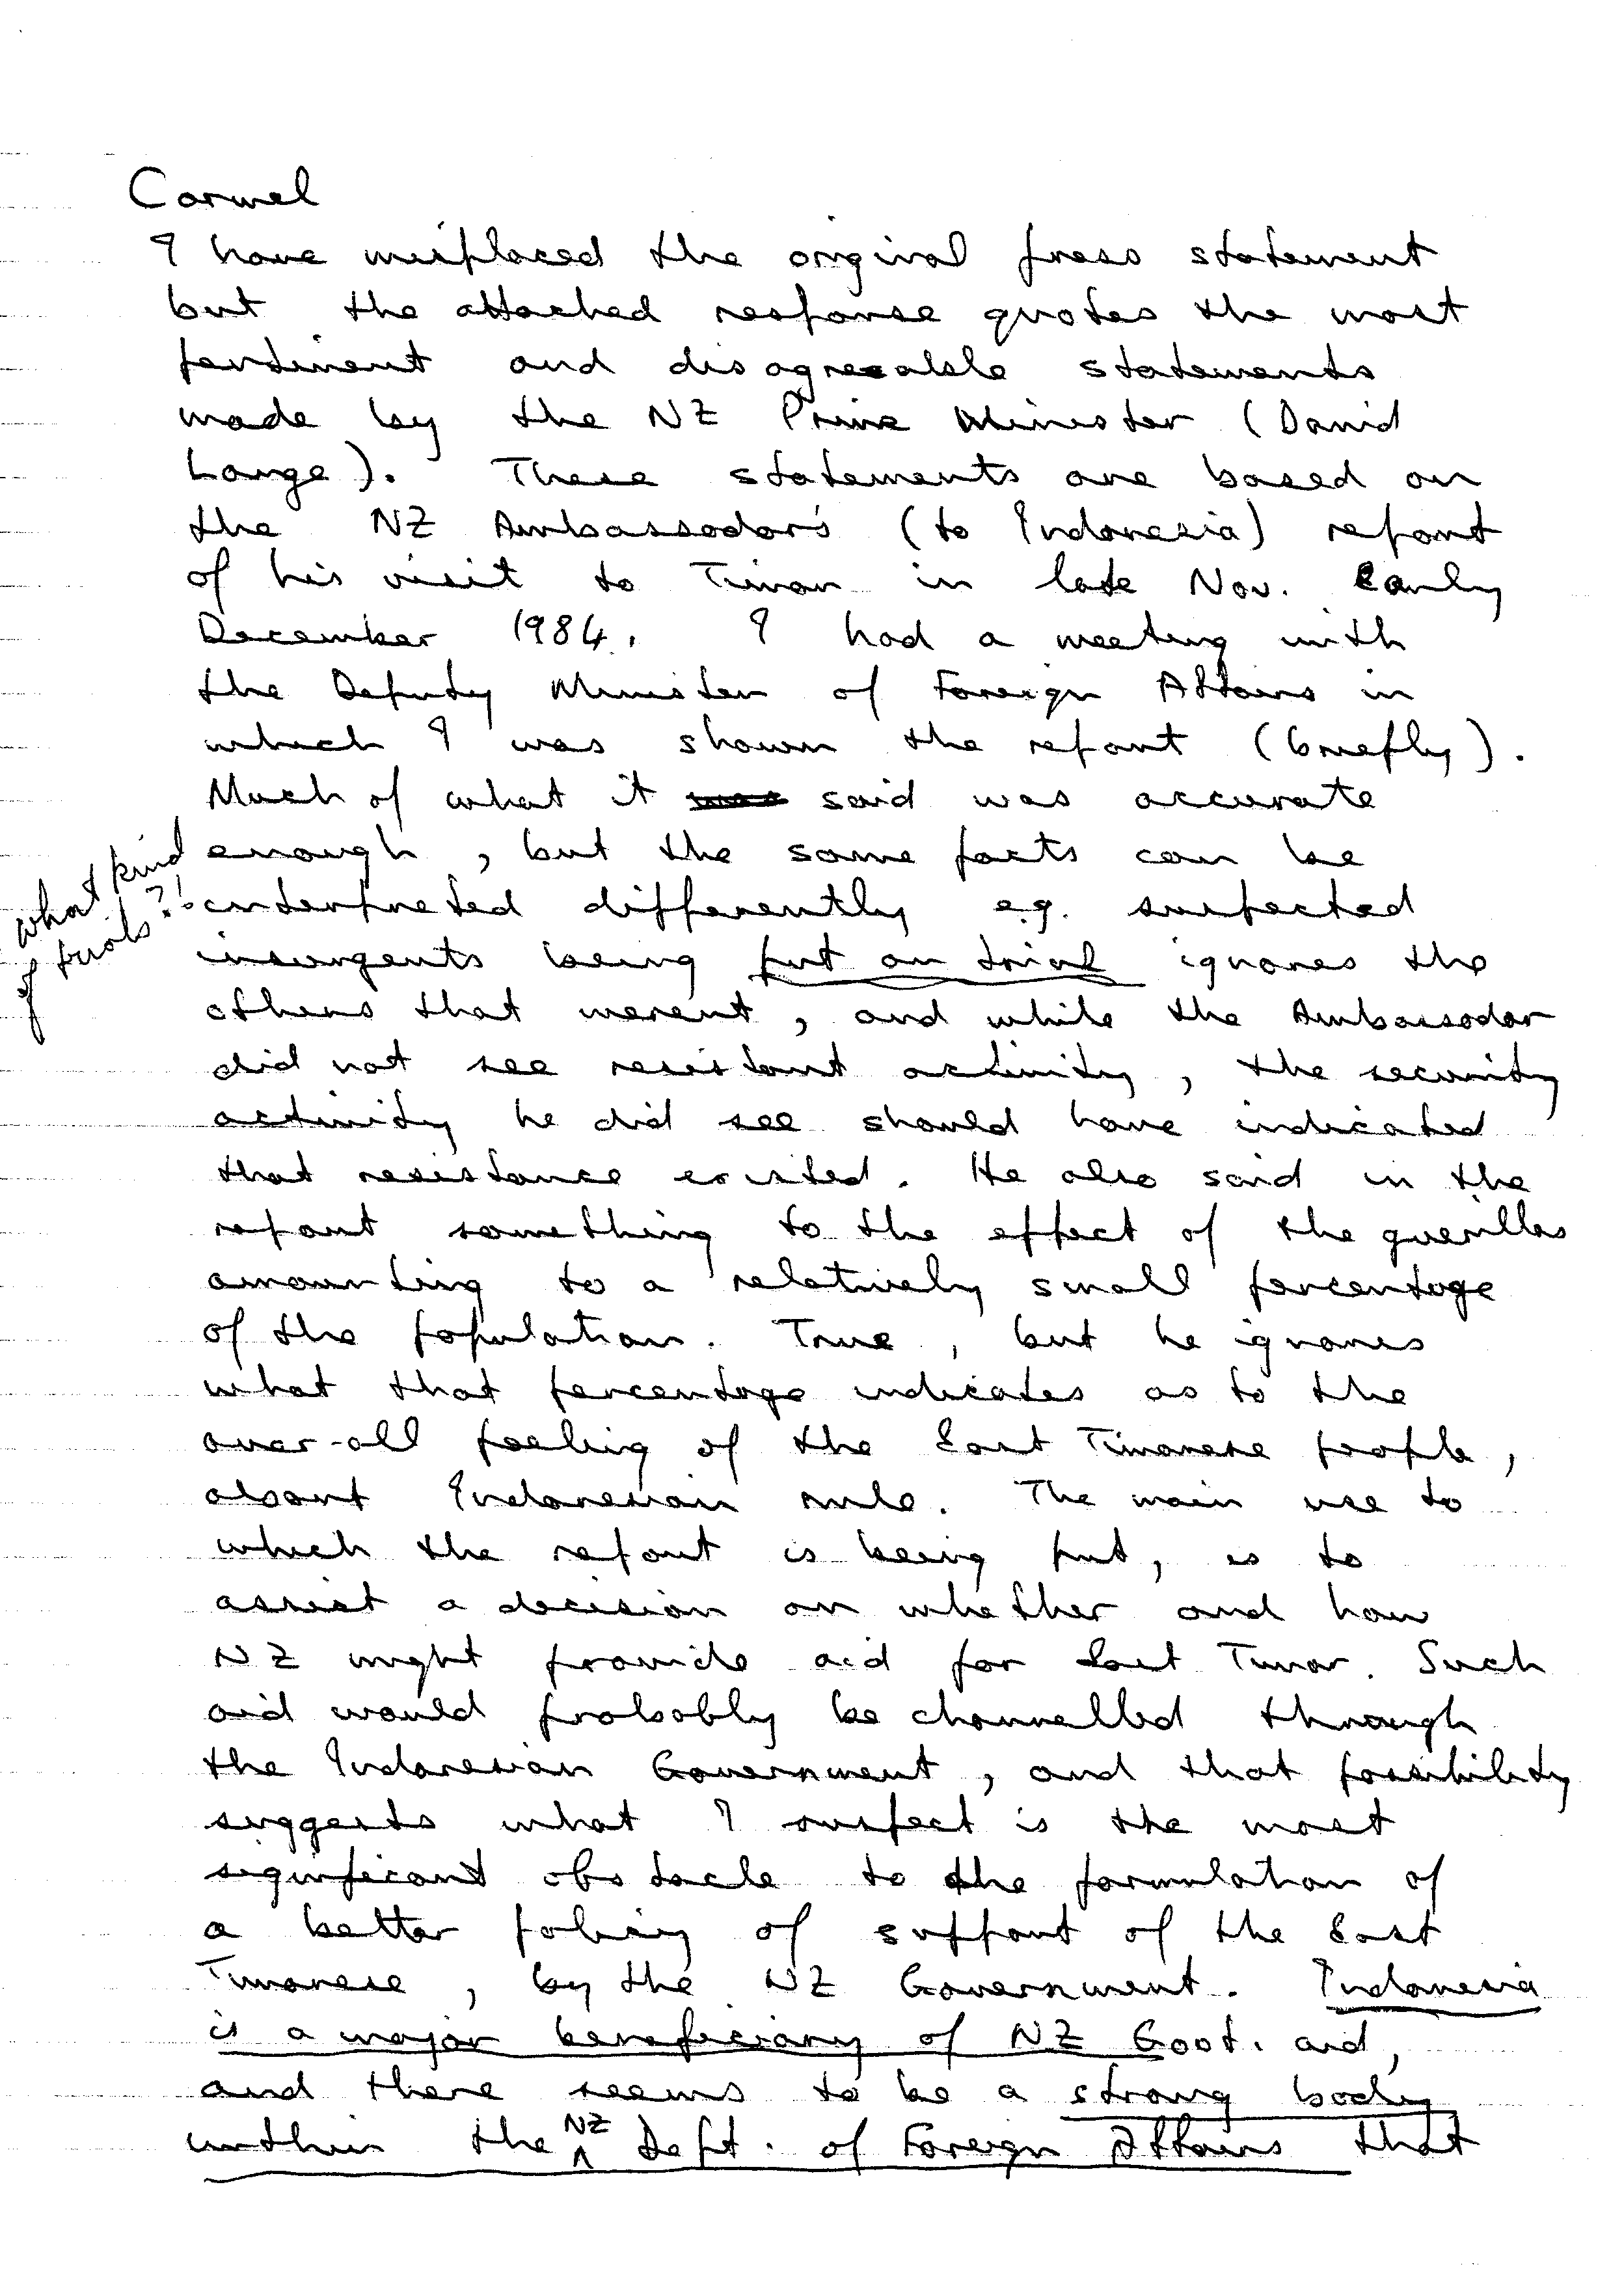 Carmel
I have misplaced the original press statement
but the attached response quotes the most
pertinent and disagreeable statements
made by the NZ Prime Minister (David
Lange). These statements are based on
the NZ Ambassador's (to Indonesia) report
of his visit to Timor in late Nov. Early
December 1984. I had a meeting with
the Deputy Minister of Foreign Affairs in
which I was shown the report (briefly).
Much of what it was said was accurate
enough, but the same facts can be
interpreted differently e.g. suspected
insurgents being put on trial ignores the
what kind
of trials?!
others that werent, and while the Ambassador
did not see resistant activity, the security
activity he did see should have indicated
that resistance existed. He also said in the
report something to the effect of the guerillas
amounting to a relatively small percentage
of the population. True, but he ignores
what that percentage indicates as to the
over-all feeling of the East Timorese people,
about Indonesian rule. The main use to
which the report is being put, is to
assist a decision on whether and how
NZ might provide aid for East Timor. Such
aid would probably be channelled through
the Indonesian Government, and that possibility
suggests what I suspect is the most
significant obstacle to the formulation of
a better policy of support of the East
Timorese, by the NZ Government. Indonesia
is a major beneficiary of NZ Govt. aid,
and there seems to be a strong body
within the NZ Dept. of Foreign Affairs that